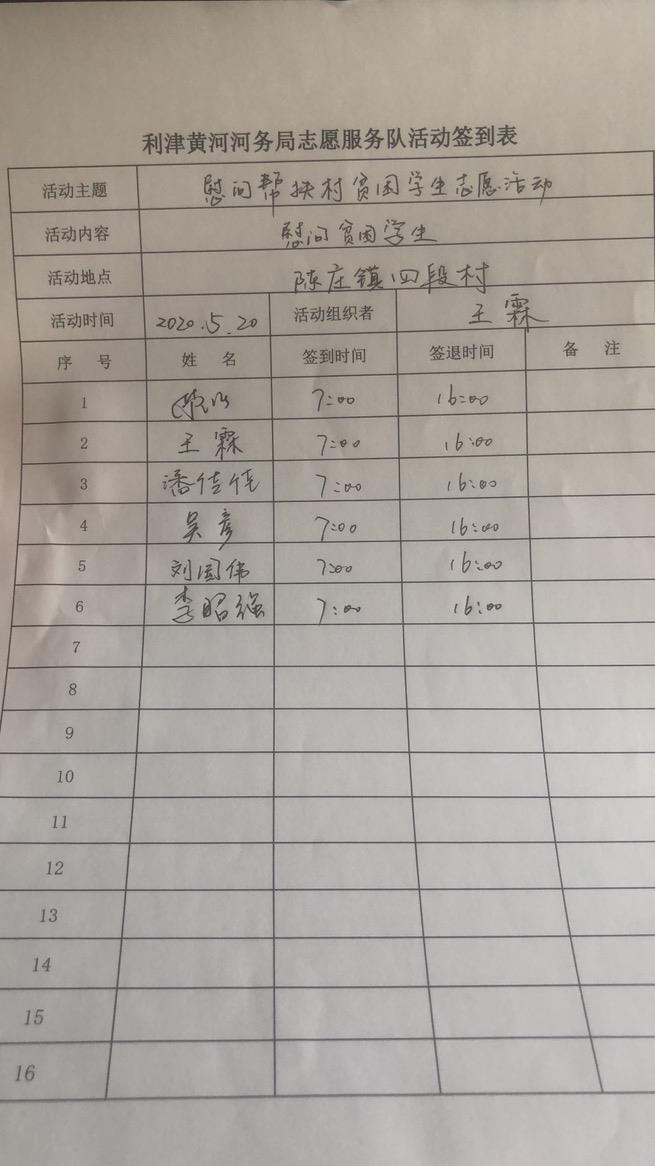 利津黄河河务局志愿服务队活动签到表
活动主题 慰问帮扶村贫困学生志愿活动
活动内容 慰问贫困学生
活动地点 陈庄镇四段村
活动时间 2020.5.20 活动组织者 王霖
序号 姓名 签到时间 签退时间 备注
1 7:00 16:00
2 王霖 7:00 16:00
3 潘佳佳 7:00 16:00
4 吴彦 7:00 16:00
5 刘国伟 7:00 16:00
6 李昭强 7:00 16:00
7
8
9
10
11
12
13
14
15
16